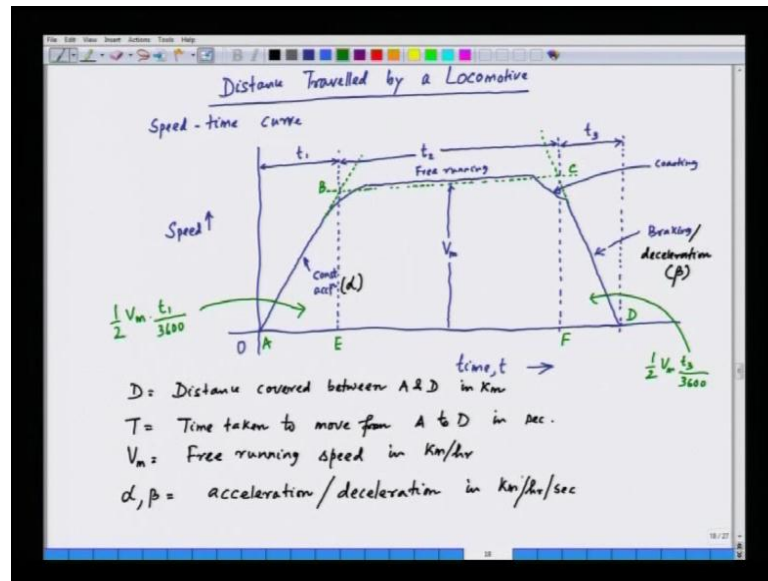 File Edit View Insert Actions Tools Help
Distance Travelled by a Locomotive
Speed-time curve
t₁ t₂ t₃
Free running
B C
coasting
Speed ↑
Vₘ
Braking/
deceleration
(β)
Const
accⁿ (α)
1/2 Vₘ · t₁/3600
O A E F D
time, t →
1/2 Vₘ t₃/3600
D = Distance covered between A & D in Km
T = Time taken to move from A to D in sec.
Vₘ = Free running speed in Km/hr
α, β = acceleration/deceleration in Km/hr/sec
18/27
18